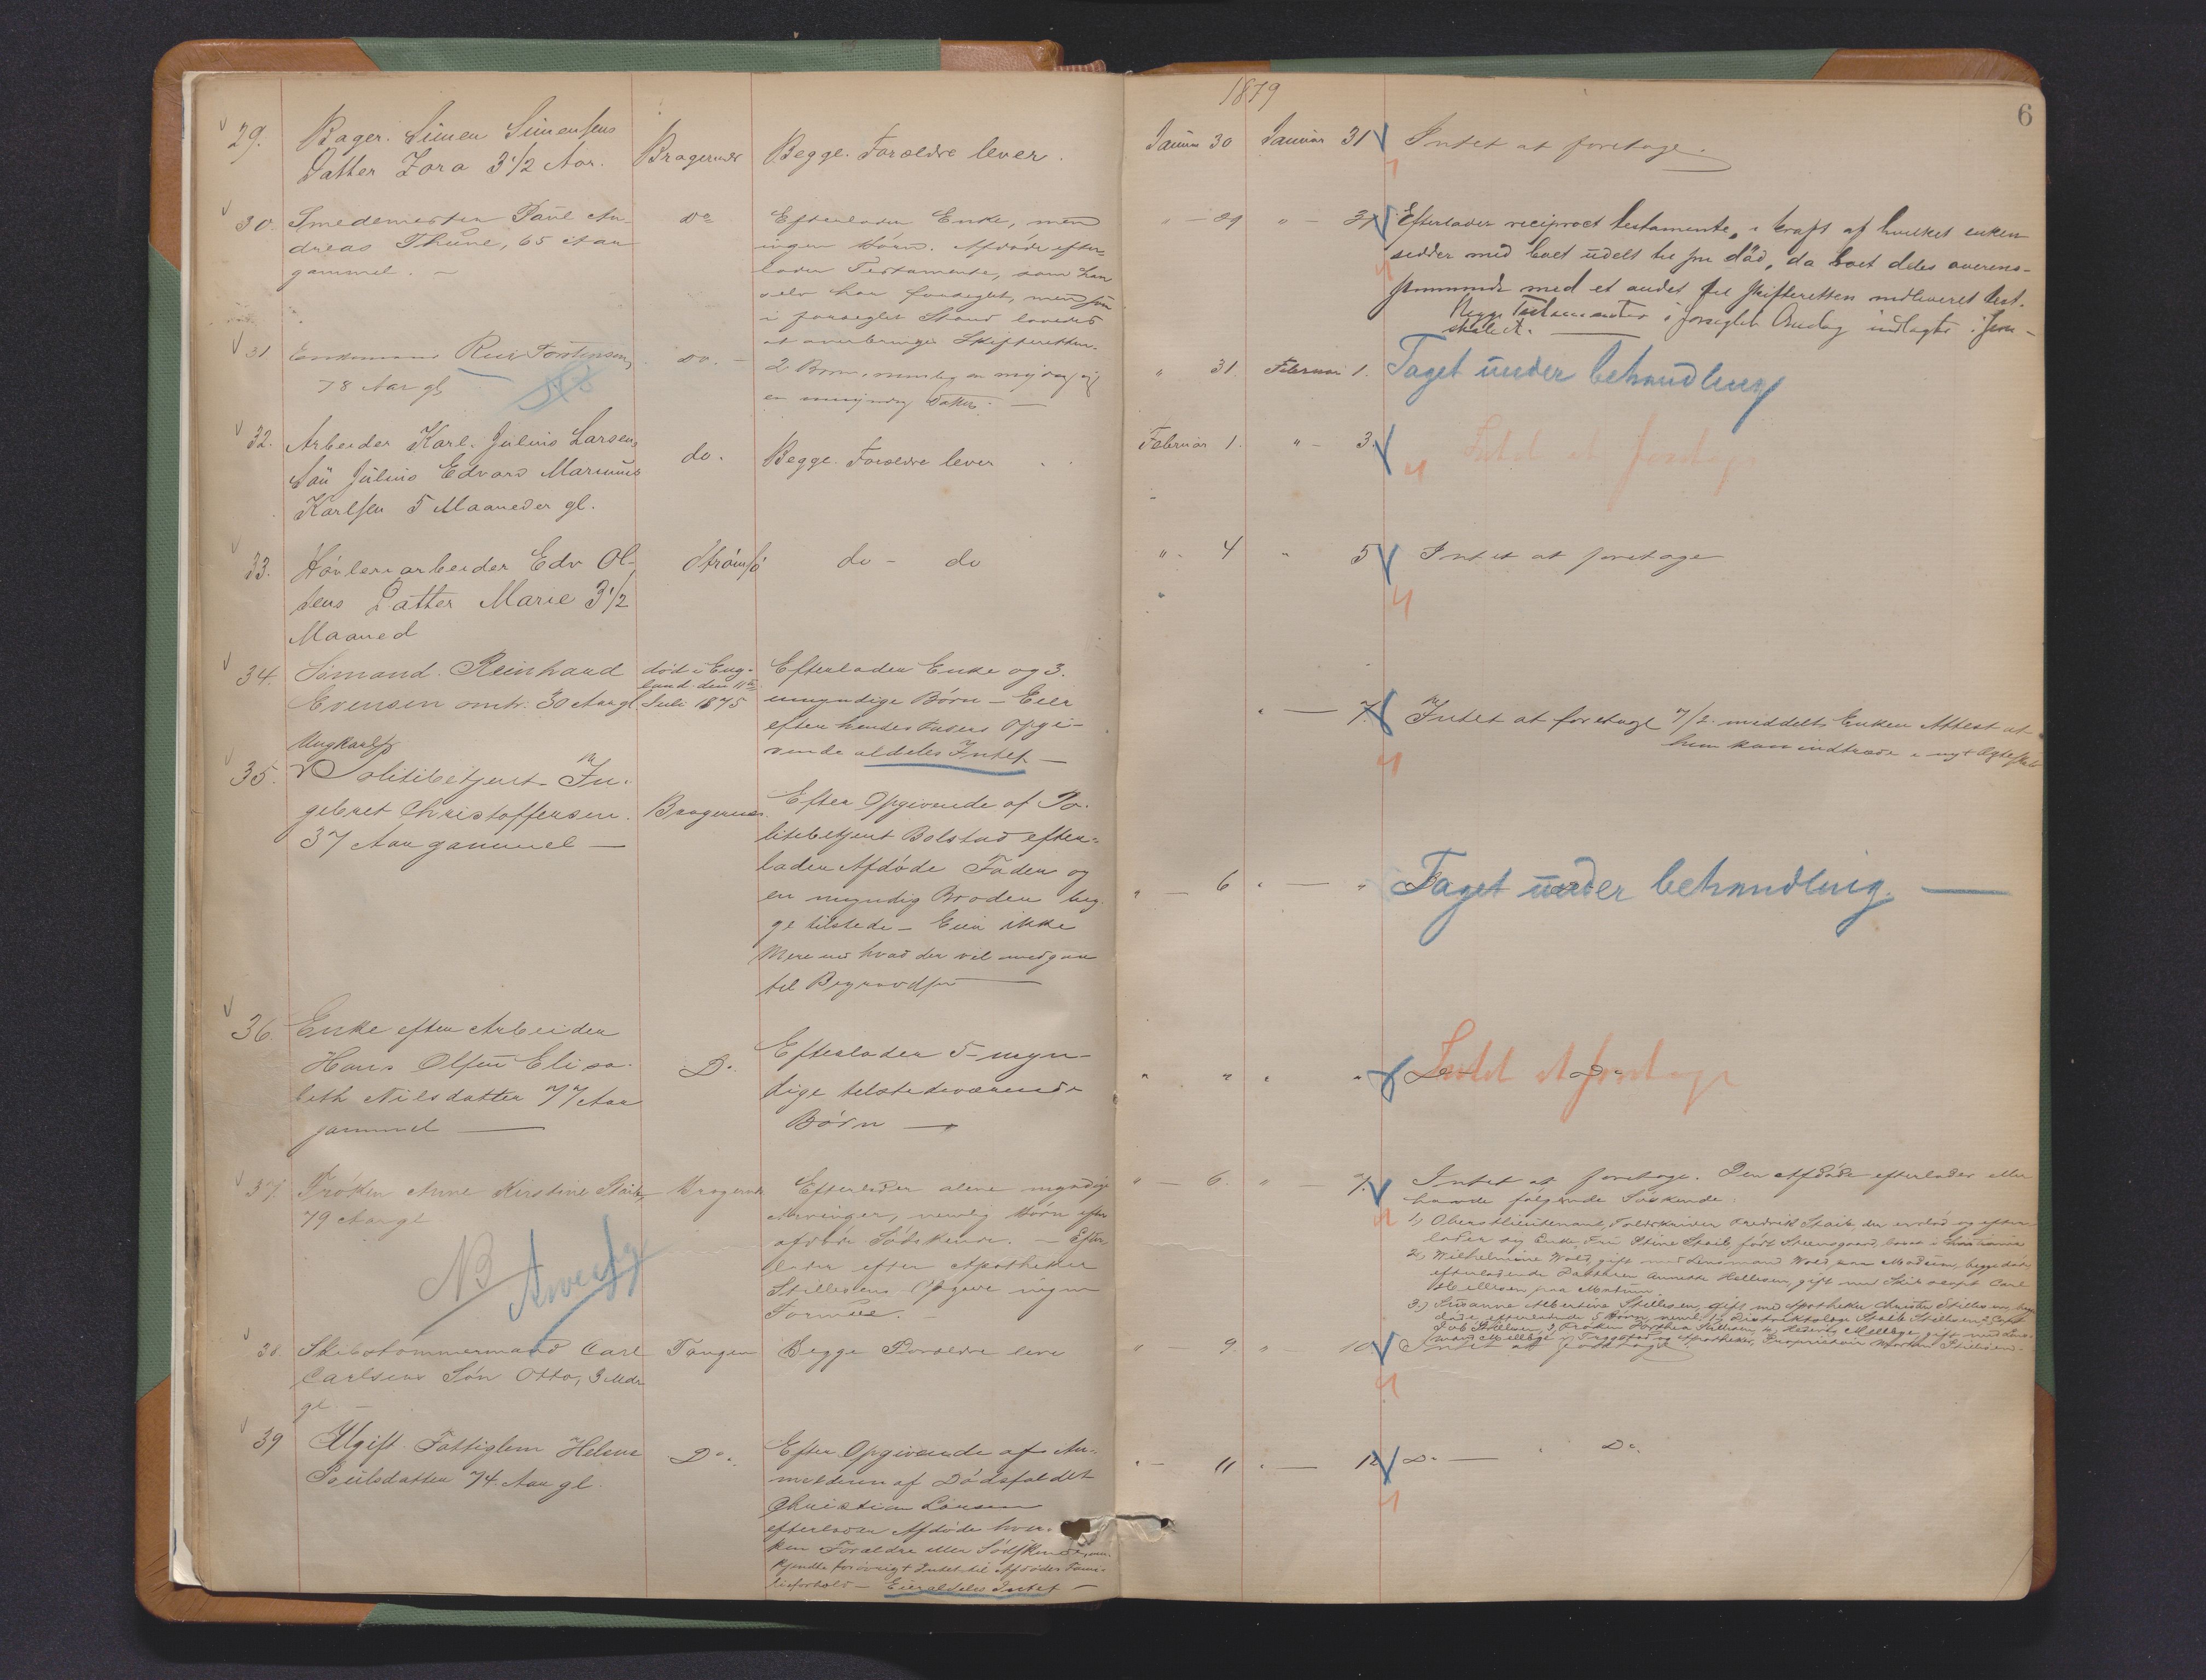 1879
6
29.
Bager. Simen Simensens
Datter Zora 3 1/2 Aar.
Bragernes
Begge Forældre lever.
Januar 30
Januar 31
Intet at foretage.
30.
Smedemester Paul An-
dreas Thune, 65 Aar
gammel.
Do
Efterlader Enke, men
ingen Børn. Afdøde efter-
lader Testamente, som han
selv har forseglet, men som
i forseglet Stand lovedes
at overbringes Skifteretten.
" - 29
" - 31
Efterlader reciproct testamente, i kraft af hvilket enken
sidder med boet udelt til sin död, da boet deles overens-
stemmende med et andet til skifteretten indleveret test.
Begge Testamenter i forseglet Omslag indlagte i
31
78 Aar gl
do. -
2 Børn, nemlig en myndig og
en umyndig Datter. -
" 31.
Februar 1.
Taget under behandling
32.
Arbeider Karl Julius Larsens
Søn Julius Edvard Marinius
Karlsen 5 Maaneder gl.
do.
Begge Forældre lever
Februar 1.
" - 3.
Intet at foretage
33.
Høvleriarbeider Edv Ol-
sens Datter Marie 3 1/2
Maaned
Strømsø
do - do
" - 4
" 5
Intet at foretage
34.
Sömand. Reinhard
Evensen omtr. 30 Aar gl
død i Eng-
land den 11te
Juli 1875
Efterlader Enke og 3.
umyndige Börn - Eier
efter hendes Faders Opgi-
vende aldeles Intet -
" - 7.
Intet at foretage 7/2 meddelt Enken Attest at
hun kan indtræde i nyt Ægteskab
35.
Ungkarl
Politibetjent In-
gebret Christoffersen.
37 Aar gammel -
Bragernes.
Efter Opgivende af Po-
litibetjent Bolstad efter-
lader Afdøde Fader og
en myndig Broder beg-
ge tilstede - Eier ikke
Mere end hvad der vil medgaa
til Begravelsen
" - 6
" - "
Taget under behandling. -
36.
Enke efter Arbeider
Hans Olsen Elisa-
beth Nilsdatter 77 Aar
gammel -
Do.
Efterlader 5 myn-
dige tilstedeværende
Børn -
" " " "
Intet at foretage
37.
Frøken Anne Kirstine Staib,
79 Aar gl
NB
Bragernes
Efterlader alene myndige
Arvinger, nemlig Børn efter
afdøde Sødskende. - Efter
lader efter Apotheker
Stillesens Opgave ingen
Formue.
" - 6.
" - 7.
Intet at foretage. Den Afdöde efterlader eller
havde følgende Søskende:
1) Oberstlieutenant, Toldskriver Fredrik Staib, der er død og efter-
lader sig Enke, Fru Stine Staib, født Steensgaard, boset i Christiania
2) Wilhelmine Wold, gift med Lensmand Wold paa Modum, begge døde
efterladende Datteren Annette Hellesen, gift med Skibscapt Carl
Hellesen paa Modum.
3.) Susanne Albertine Stillesen, gift med Apotheker Christen Stillesen, begge
døde efterladende 5 Børn, nemlig 1) Distriktslæge Staib Stillesen, 2) Capt
Jacob Stillesen, 3) Frøken Dorothea Stillesen, 4) Hedevig Mellbye, gift med Lens-
mand Mellbye i Trøgstad og Apotheker, Proprietair Morten Stillesen.
38.
Skibstømmermand Carl
Carlsens Søn Otto, 3 Mdr
gl. -
Tangen
Begge Forældre leve
" - 9.
" - 10.
Intet at foretage
39
Ugift Fattiglem Helene
Poulsdatter 74 Aar gl.
Do.
Efter Opgivende af An-
melderen af Dødsfaldet
Christian Larsen
efterlader Afdøde hver-
ken Forældre eller Sødskende,
Kjendte forøvrigt Intet til Afdødes Fami-
lieforhold - Eier aldeles Intet -
" - 11
" - 12
Do - Do.